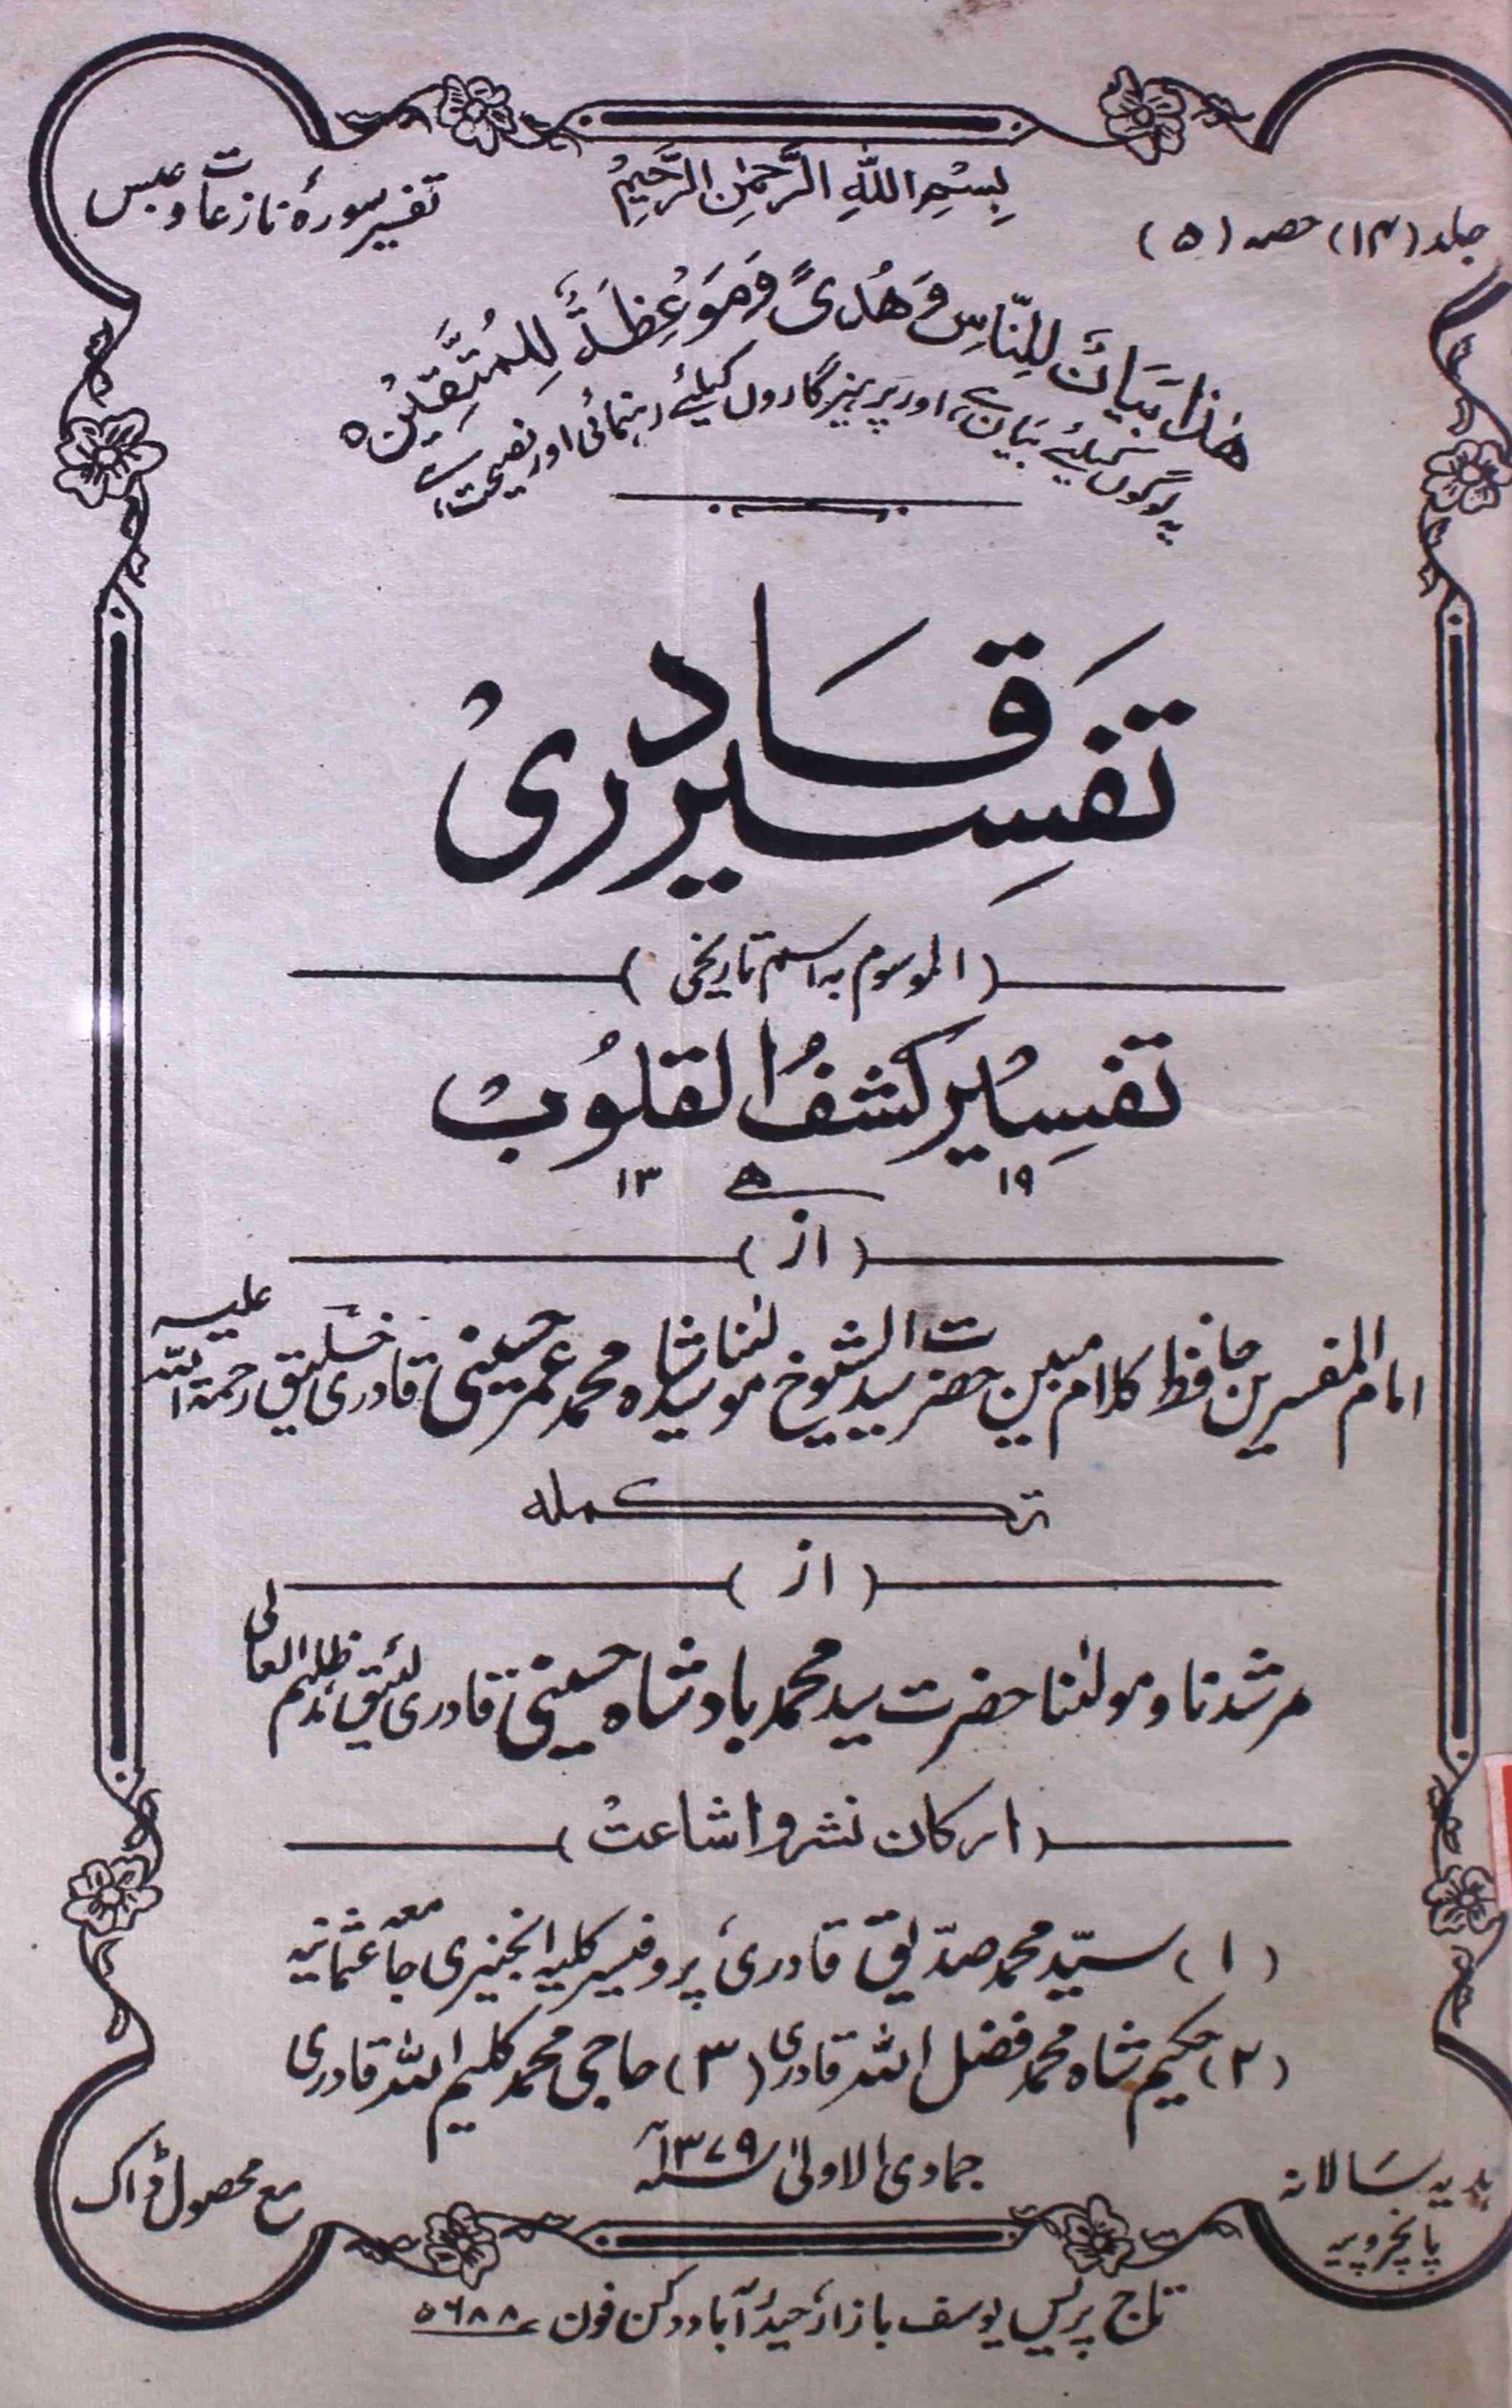 بِسْمِ اللّٰهِ الرَّحْمٰنِ الرَّحِيْمِ
جلد (۱۴) حصہ (۵)
تفسیر سورۂ نازعات و عبس
هٰذَا بَيَانٌ لِّلنَّاسِ وَهُدًى وَّمَوْعِظَةٌ لِّلْمُتَّقِيْنَ ٥
یہ لوگوں کیلئے بیان ہے، اور پرہیزگاروں کیلئے رہنمائی اور نصیحت ہے
تفسیر قادری
(الموسوم بہ اسم تاریخی)
تفسیر کشف القلوب
۱۹ ھ ۱۳
(از)
امام المفسرین حافظ کلام مبین حضرت سید الشیوخ مولٰنا سید شاہ محمد عمر حسینی قادری خلیق رحمۃ اللہ علیہ
تکملہ
(از)
مرشدنا و مولٰنا حضرت سید محمد بادشاہ حسینی قادری لئیق مدظلہم العالی
(ارکان نشر و اشاعت)
(۱) سیّد محمد صدّیق قادری پروفیسر کلیہ انجنیری جامعہ عثمانیہ
(۲) حکیم شاہ محمد فضل اللہ قادری (۳) حاجی محمد کلیم اللہ قادری
جمادی الاولیٰ سنہ ۱۳۷۹
ہدیہ سالانہ
پانچروپیہ
مع محصول ڈاک
تاج پریس یوسف بازار، حیدرآباد دکن فون ۵۶۸۸